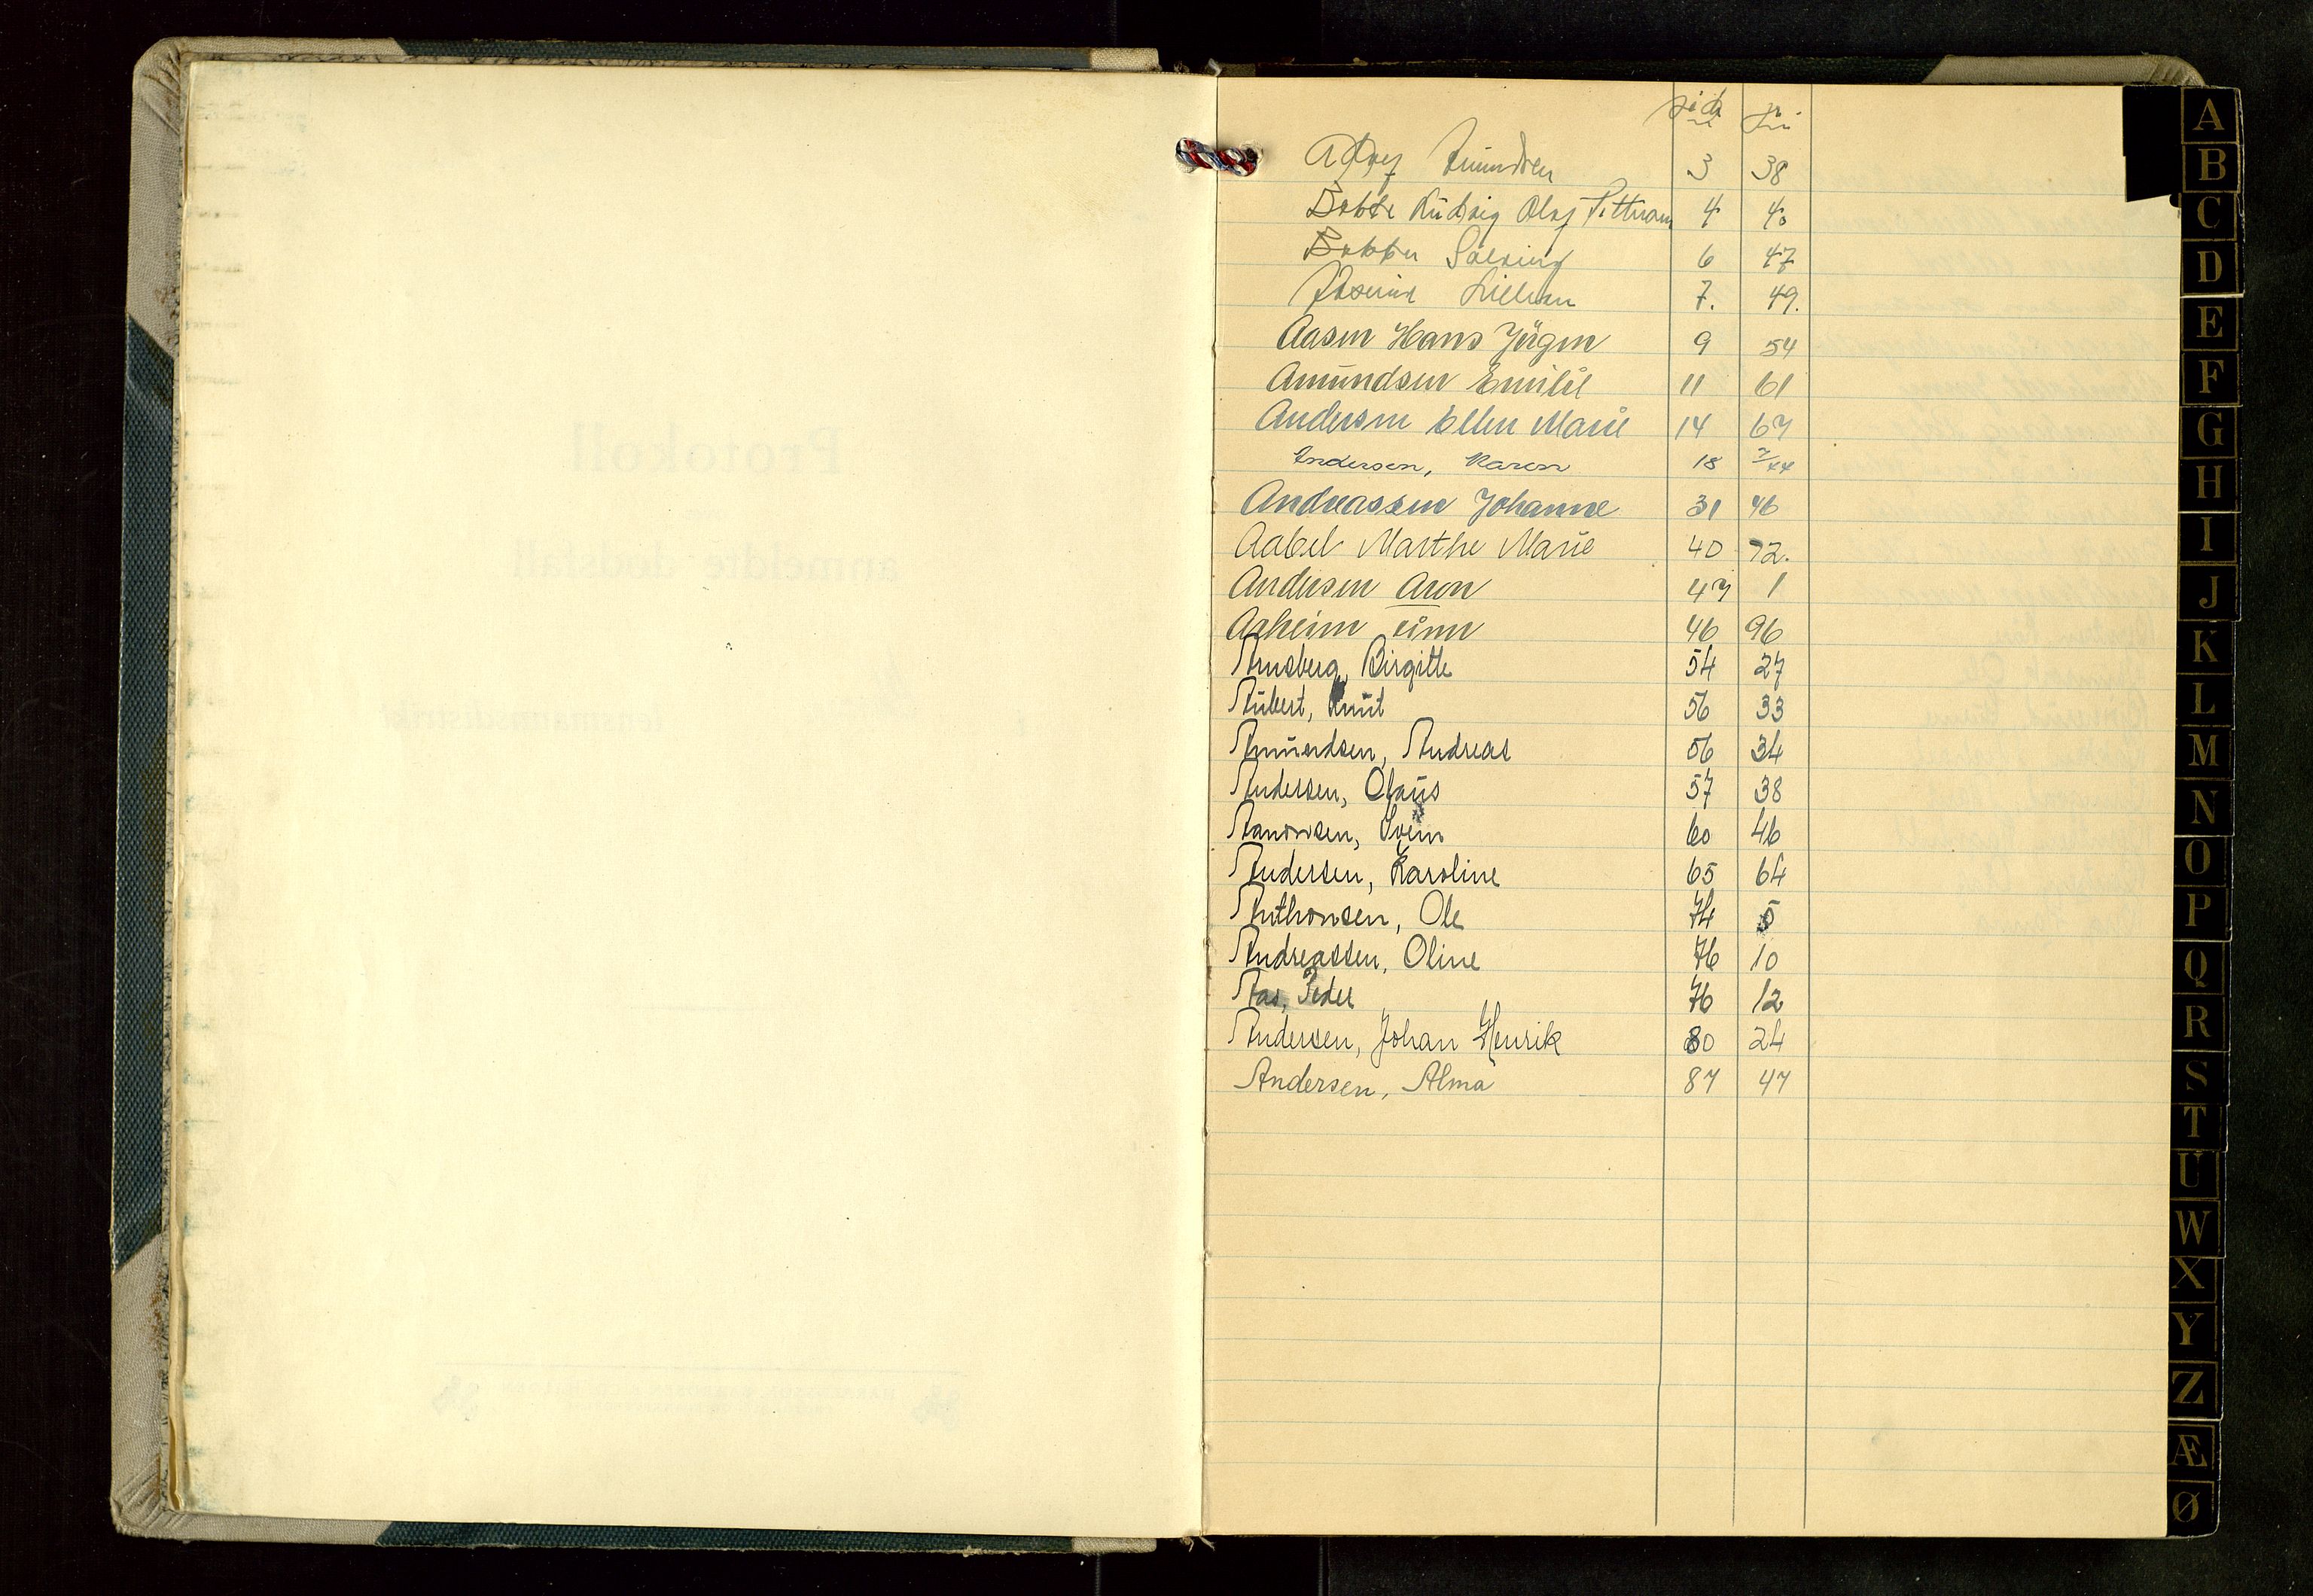 side nr.
Amundsen 3 38
Ludvig Olaf 4 40
6 47
7. 49.
Aasen Hans Jørgen 9 54
Amundsen Emilie 11 61
Andersen Ellen Marie 14 67
Andersen, Karen 18 7/44
Andreassen Johanne 31 46
Aabel Marthe Marie 40 72.
Andersen Aron 47 1
Asheim Finn 46 96
Arnsberg, Birgitte 54 27
Aubert, Knut 56 33
Amundsen, Andreas 56 34
Andersen, Olaus 57 38
Aanonsen, Svein 60 46
Andersen, Karoline 65 64
Anthonsen, Ole 74 5
Andreassen, Oline 76 10
Aas, Peder 76 12
Andersen, Johan Henrik 80 24
Andersen, Alma 87 47
A
B
C
D
E
F
G
H
I
J
K
L
M
N
O
P
Q
R
S
T
U
W
X
Y
Z
Æ
Ø